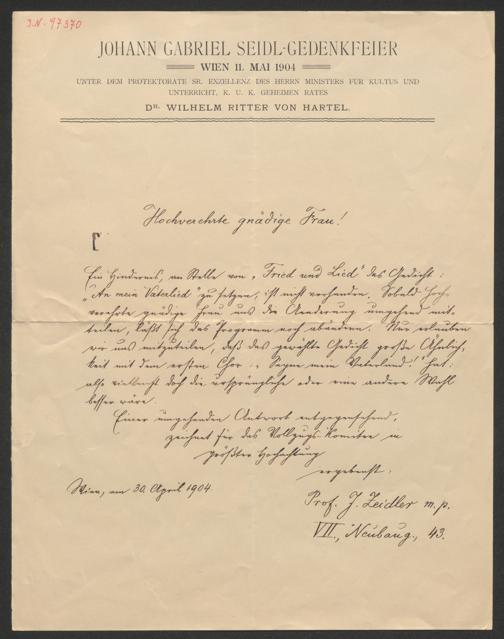 I.N. 97370
JOHANN GABRIEL SEIDL-GEDENKFEIER
WIEN 11. MAI 1904
UNTER DEM PROTEKTORATE SR. EXZELLENZ DES HERRN MINISTERS FÜR KULTUS UND
UNTERRICHT, K. U. K. GEHEIMEN RATES
DR. WILHELM RITTER VON HARTEL.
Hochverehrte gnädige Frau!
Ein Hindernis, an Stelle von „Fried und Lied" das Gedicht:
„An mein Vaterlied" zu setzen, ist nicht vorhanden. Sobald Hoch-
verehrte gnädige Frau uns die Aenderung umgehend mit-
teilen, läßt sich das Programm noch abändern. Nur erlauben
wir uns mitzuteilen, daß das gewählte Gedicht große Ähnlich-
keit mit dem ersten Chor: „Segne mein Vaterland!" hat,
also vielleicht doch die ursprüngliche oder eine andere Wahl
besser wäre.
Einer umgehenden Antwort entgegensehend,
zeichnet für das Vollzugs-Komitee in
größter Hochachtung
ergebenst.
Wien, am 30. April 1904.
Prof. J. Zeidler m. p.
VII., Neubaug., 43.